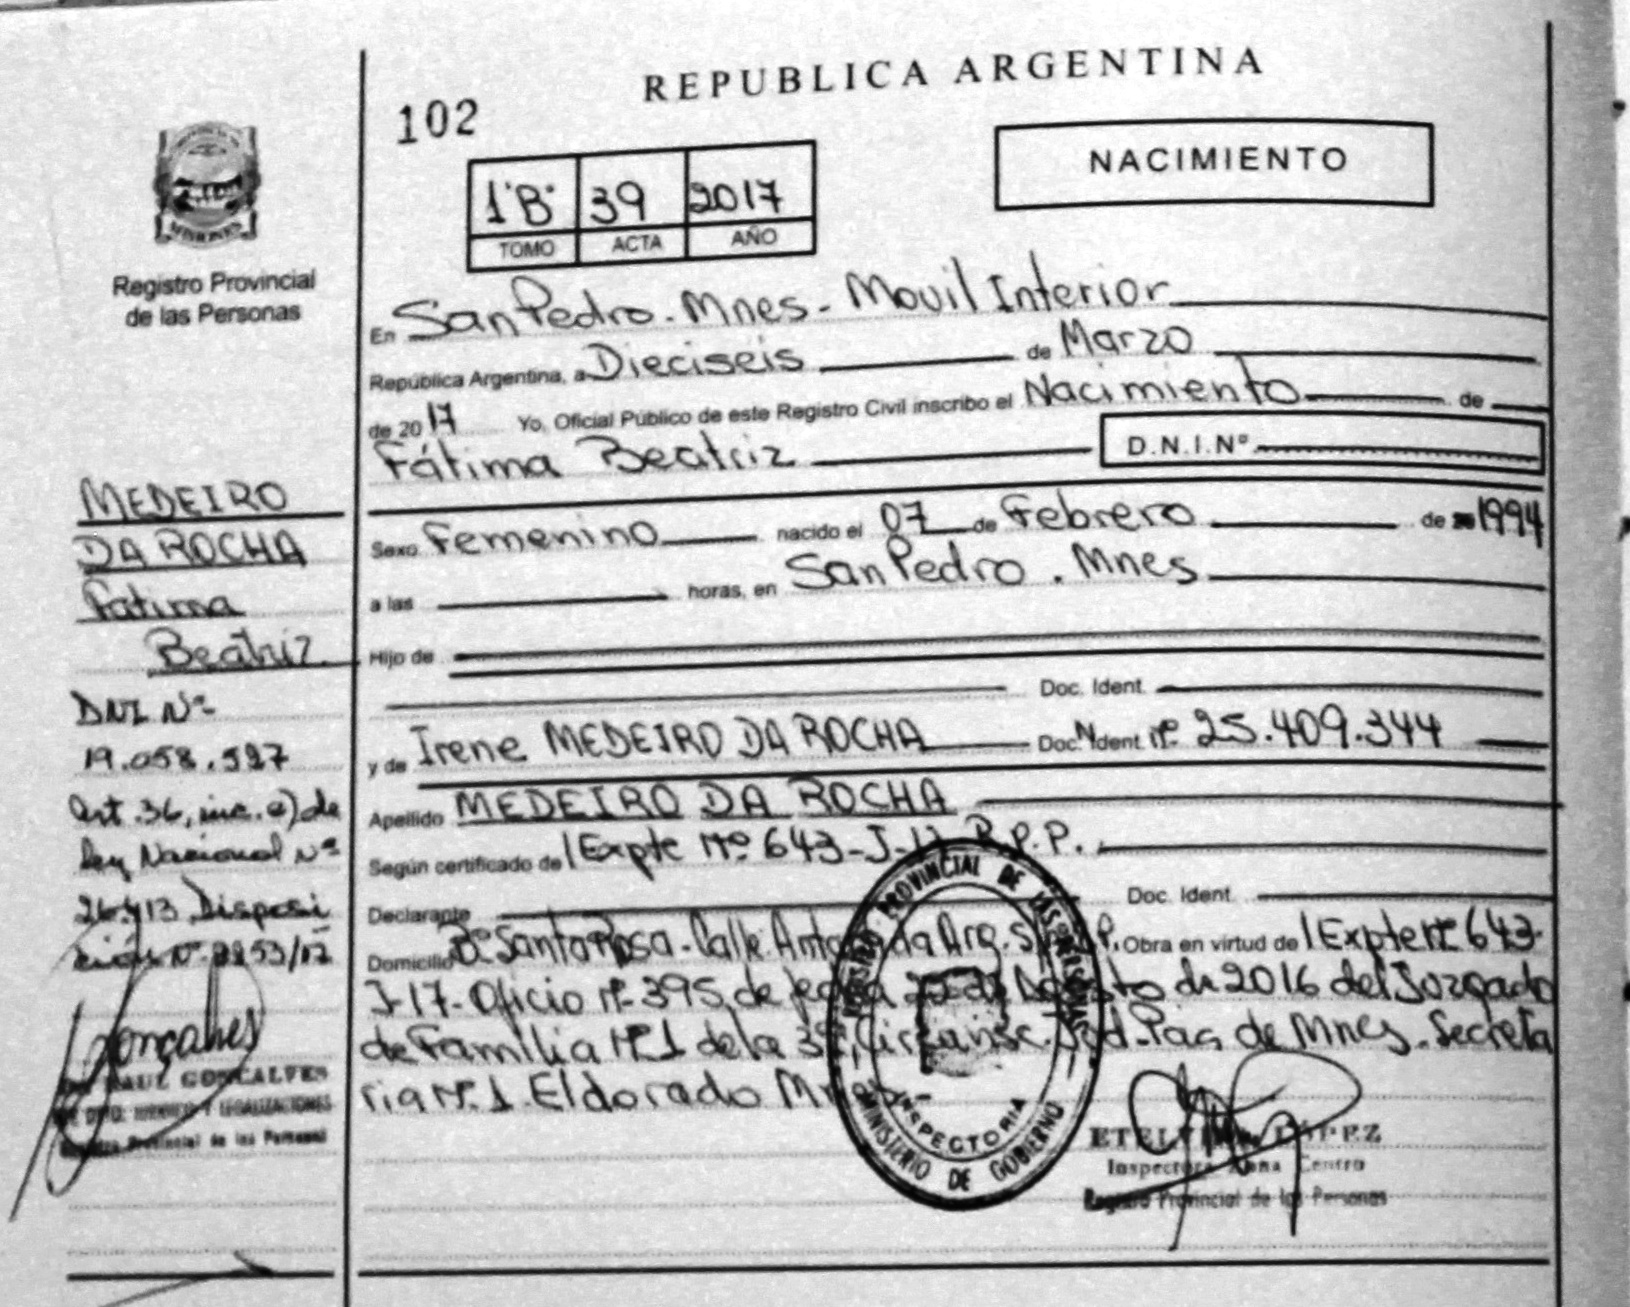 REPUBLICA ARGENTINA
102
NACIMIENTO
1"B" 39 2017
TOMO ACTA AÑO
MISIONES
Registro Provincial
de las Personas
En San Pedro. Mnes. Movil Interior
República Argentina, a Dieciseis de Marzo
de 2017 Yo, Oficial Público de este Registro Civil inscribo el Nacimiento de
Fátima Beatriz D.N.I.Nº
Sexo Femenino nacido el 07 de Febrero de 1994
a las horas, en San Pedro. Mnes
Hijo de
Doc. Ident.
y de Irene MEDEIRO DA ROCHA Doc. Ident. Nº 25.409.344
Apellido MEDEIRO DA ROCHA
Según certificado de Expte Nº 643-J-17 R.P.P.
Declarante Doc. Ident.
Domicilio Bº Santa Rosa - Calle Obra en virtud de Expte Nº 643-
J-17- Oficio Nº 395 de fecha de 2016 del Juzgado
de Familia Nº1 de la 3º Jud. de Mnes. Secreta
ria Nº 1. Eldorado
MEDEIRO
DA ROCHA
Fatima
Beatriz
DNI Nº
19.058.527
Art. 36, inc. c) de
Ley Nacional Nº
26.413 Disposi
ción Nº
Gonçalves
RAUL GONCALVES
Registro Provincial de las Personas
REGISTRO PROVINCIAL DE LAS PERSONAS
INSPECTORIA
MINISTERIO DE GOBIERNO
Inspectora Zona Centro
Registro Provincial de las Personas